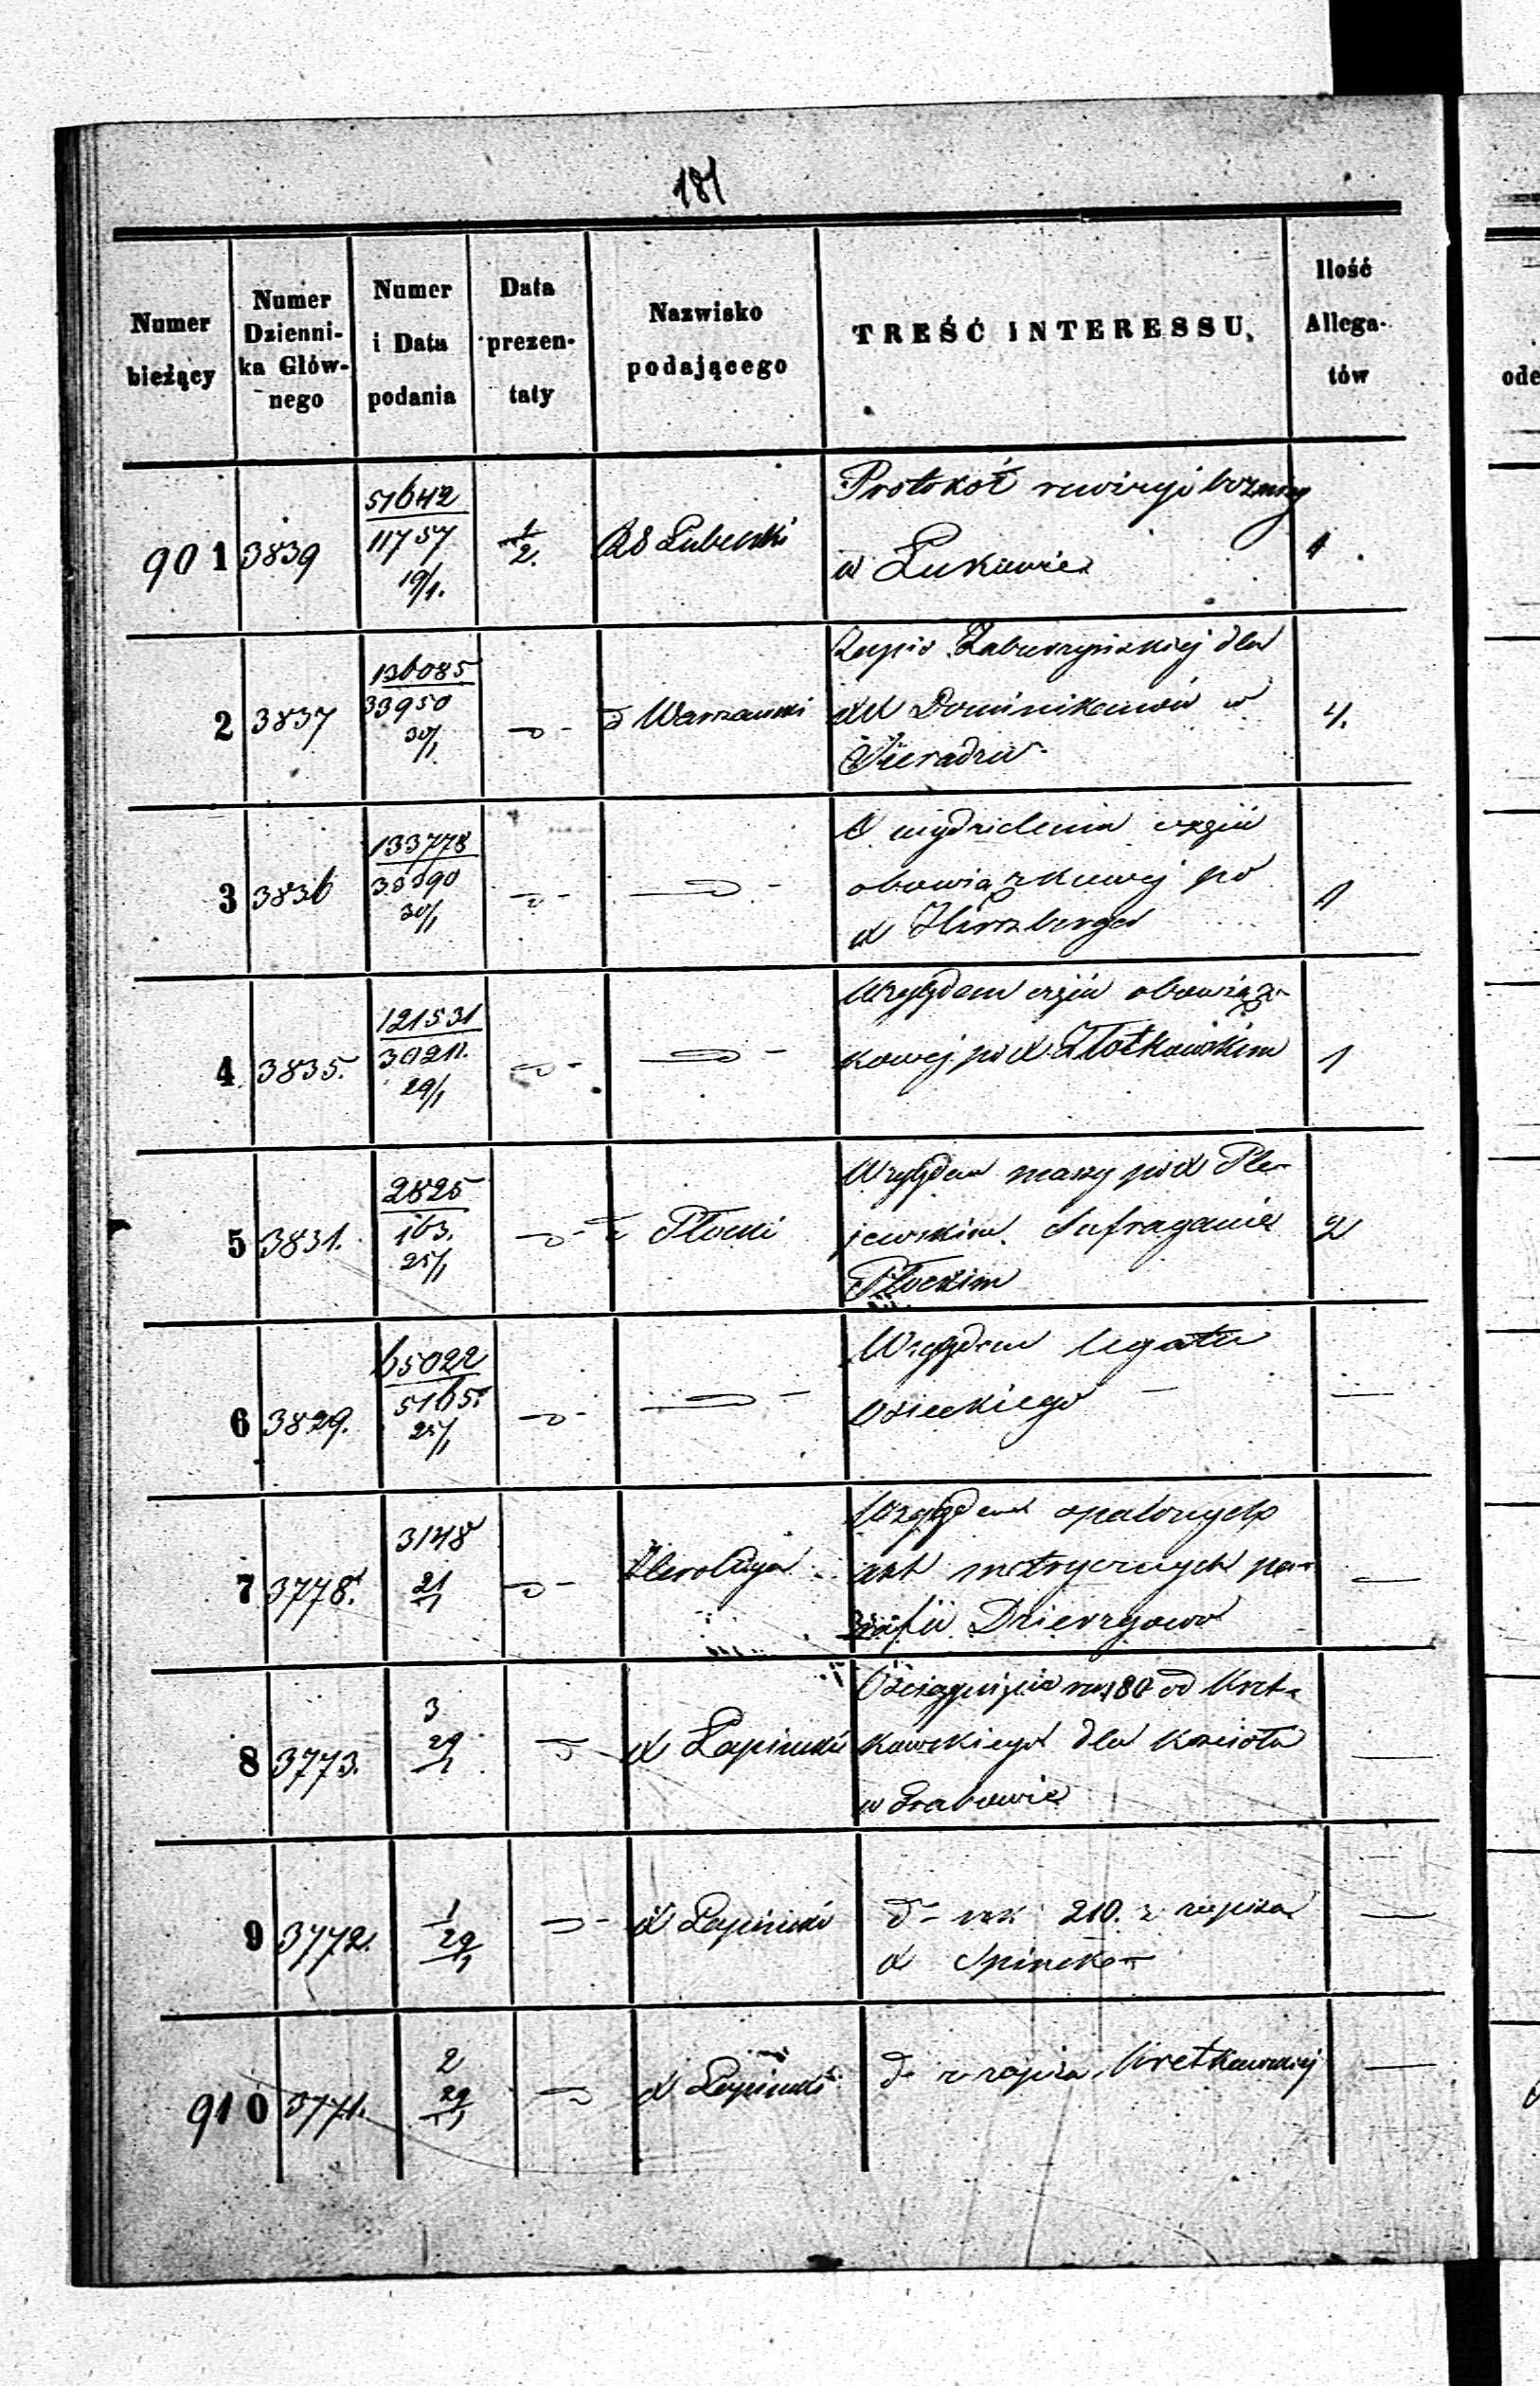 181
Numer bieżący
Numer Dzienni- ka Głów- nego
Numer i Data podania
Data prezen- taty
Nazwisko podającego
TREŚĆ INTERESSU.
Ilość Allega- tów
901 3839 51642 11757 19/1. 1/2. Protokół rewizyi
w 1
2 3837 136085 33950 30/1 Warszawski dla
XX Dominikanów w 4.
Sieradzu
3 3836 133778 30/1 O wydzielenia części
obowiązkowej po 1
X Hirszberga
4 3835. 121531 30211. 29/1 Względem części obowiąz-
kowej po X Złotkowskim 1
5 3831. 2825 163. 25/1 Płocki Względem massy po X Ple-
jewskim Sufraganie 2
Płockim
6 3829. 65022 5165. 25/1 Względem legatu —
Osieckiego —
7 3778. 3148 21/1 Heroldya Względem spalonych
akt metrycznych pa- —
rafii Dzierzgowo
8 3773. 3 29/1 X Łapiński Ościągnięcie rs 180 od Kret-
kowskiego dla kościoła —
w Grabowie
9 3772. 1 29/1 X Łapiński d- 210. z zapisu —
X
910 3771. 2 29/1 X Łapiński d- z zapisu Kretkowskiej —
ode